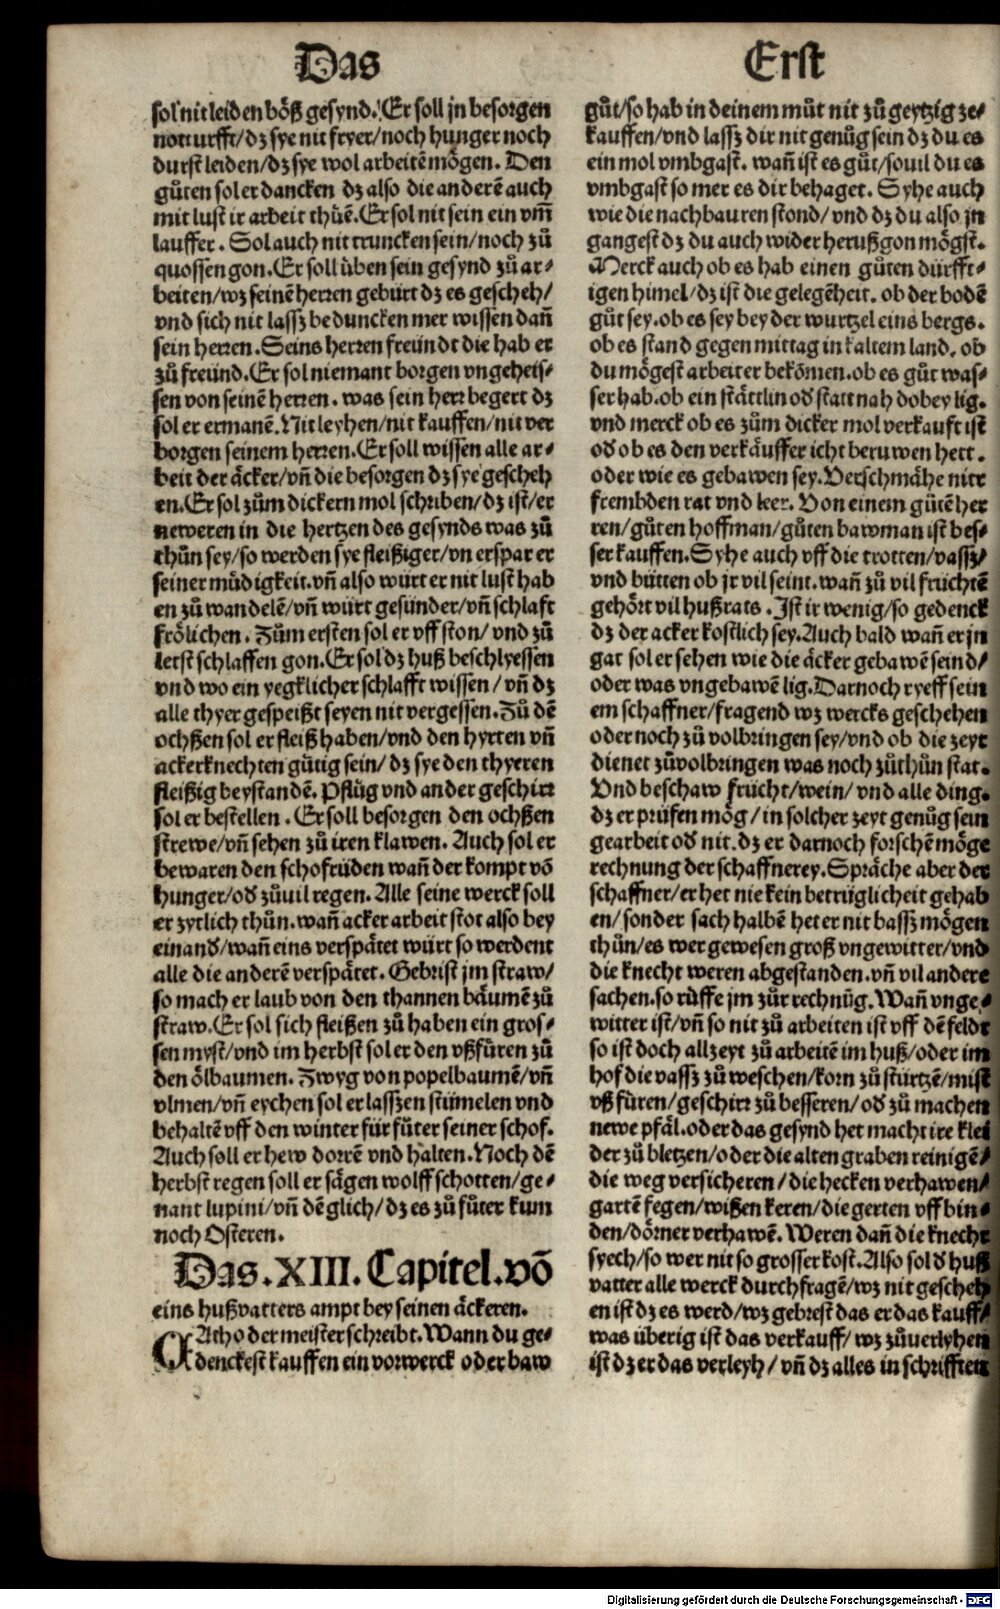 Das
Erst
sol nit leiden böß gesynd. Er soll jn besorgen
notturfft/ dz sye nit fryer/ noch hunger noch
durst leiden/ dz sye wol arbeitẽ mögen. Den
gůten sol er dancken dz also die anderẽ auch
mit lust ir arbeit thůẽ. Er sol nit sein ein vm̃
lauffer. Sol auch nit truncken sein/ noch zů
quossen gon. Er soll üben sein gesynd zů ar⸗
beiten/ wz seinẽ herren gebürt dz es gescheh/
vnd sich nit lassz beduncken mer wissen dañ
sein herren. Seins herren freündt die hab er
zů freünd. Er sol niemant borgen vngeheis⸗
sen von seinẽ herren. was sein herr begert dz
sol er ermanẽ. Nit leyhen/ nit kauffen/ nit ver
borgen seinem herren. Er soll wissen alle ar⸗
beit der äcker/ vñ die besorgen dz sye gescheh
en. Er sol zům dickern mol schriben/ dz ist/ er
neweren in die hertzen des gesynds was zů
thůn sey/ so werden sye fleißiger/ vn erspar er
seiner můdigkeit. vñ also würt er nit lust hab
en zů wandelẽ/ vñ würt gesünder/ vñ schlaft
frölichen. Zům ersten sol er vff ston/ vnd zů
letst schlaffen gon. Er sol dz huß beschlyessen
vnd wo ein yegklicher schlafft wissen/ vñ dz
alle thyer gespeißt seyen nit vergessen. Zů dẽ
ochßen sol er fleiß haben/ vnd den hyrten vñ
ackerknechten gůtig sein/ dz sye den thyeren
fleißig beystandẽ. Pflůg vnd ander geschirr
sol er bestellen. Er soll besorgen den ochßen
strewe/ vñ sehen zů iren klawen. Auch sol er
bewaren den schofrüden wañ der kompt võ
hunger/ oď zůuil regen. Alle seine werck soll
er zytlich thůn. wañ acker arbeit stot also bey
einanď/ wañ eins verspätet würt so werdent
alle die anderẽ verspätet. Gebrist jm straw/
so mach er laub von den thannen bäumẽ zů
straw. Er sol sich fleißen zů haben ein gros⸗
sen myst/ vnd im herbst sol er den vßfüren zů
den ölbaumen. Zwyg von popelbaumẽ/ vñ
vlmen/ vñ eychen sol er lasszen stümelen vnd
behaltẽ vff den winter für fůter seiner schof.
Auch soll er hew dorrẽ vnd halten. Noch dẽ
herbst regen soll er sägen wolffschotten/ ge⸗
nant lupini/ vñ dẽglich/ dz es zů fůter kum
noch Osteren.
Das. XIII. Capitel. võ
eins hußvatters ampt bey seinen äckeren.
CAtho der meister schreibt. Wann du ge⸗
denckest kauffen ein vorwerck oder baw
gůt/ so hab in deinem můt nit zů geytzig ze⸗
kauffen/ vnd lassz dir nit genůg sein dz du es
ein mol vmbgast. wañ ist es gůt/ souil du es
vmbgast so mer es dir behaget. Syhe auch
wie die nachbauren stond/ vnd dz du also jn
gangest dz du auch wider herußgon mögst.
Merck auch ob es hab einen gůten dürfft⸗
igen himel/ dz ist die gelegẽheit. ob der bodẽ
gůt sey. ob es sey bey der wurtzel eins bergs.
ob es stand gegen mittag in kaltem land. ob
du mögest arbeiter bekõmen. ob es gůt was⸗
ser hab. ob ein stättlin oď statt nah dobey lig.
vnd merck ob es zům dicker mol verkauft ist
oď ob es den verkäuffer icht beruwen hett.
oder wie es gebawen sey. Verschmähe nitt
frembden rat vnd leer. Von einem gůtẽ her
ren/ gůten hoffman/ gůten bawman ist bes⸗
ser kauffen. Syhe auch vff die trotten/ vassz/
vnd bütten ob jr vil seint. wañ zů vil früchtẽ
gehört vil hußrats. Ist ir wenig/ so gedenck
dz der acker kostlich sey. Auch bald wañ er jn
gat sol er sehen wie die äcker gebawẽ seind/
oder was vngebawẽ lig. Darnoch ryeff sein
em schaffner/ fragend wz wercks geschehen
oder noch zů volbringen sey/ vnd ob die zeyt
dienet zůvolbringen was noch zůthůn stat.
Vnd beschaw frücht/ wein/ vnd alle ding.
dz er prüfen mög/ in solcher zeyt genůg sein
gearbeit oď nit. dz er darnoch forschẽ möge
rechnung der schaffnerey. Spräche aber der
schaffner/ er het nie kein betrüglicheit gehab
en/ sonder sach halbẽ het er nit bassz mögen
thůn/ es wer gewesen groß vngewitter/ vnd
die knecht weren abgestanden. vñ vil andere
sachen. so rüffe jm zůr rechnũg. Wañ vnge⸗
witter ist/ vñ so nit zů arbeiten ist vff dẽ feldt
so ist doch allzeyt zů arbeitẽ im huß/ oder im
hof die vassz zů weschen/ korn zů stürtzẽ/ mist
vß füren/ geschirr zů besseren/ oď zů machen
newe pfäl. oder das gesynd het macht ire klei
der zů bletzen/ oder die alten graben reinigẽ/
die weg versicheren/ die hecken verhawen/
gartẽ fegen/ wißen keren/ die gerten vff bin⸗
den/ dörner verhawẽ. Weren dañ die knecht
syech/ so wer nit so grosser kost. Also sol ď huß
vatter alle werck durchfragẽ/ wz nit gescheh
en ist dz es werd/ wz gebrest das er das kauff/
was überig ist das verkauff/ wz zůuerlyhen
ist dz er das verleyh/ vñ dz alles in schrifften
Digitalisierung gefördert durch die Deutsche Forschungsgemeinschaft - DFG